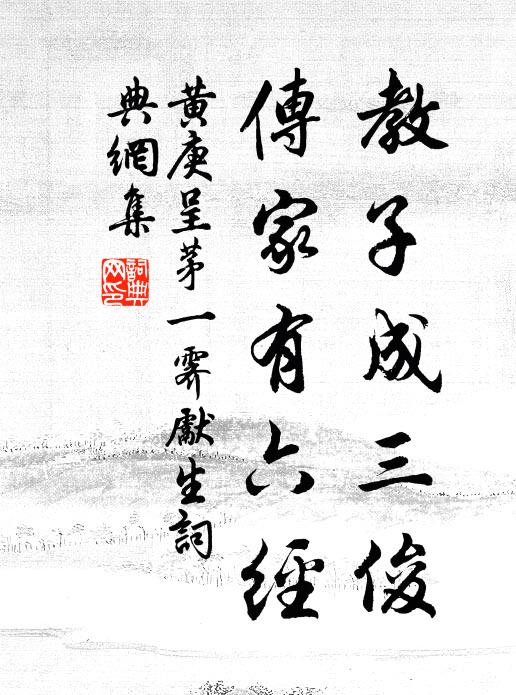 教子成三俊
傳家有六經
黃庚呈茅一霽獻生詞
典網集
詞典
网印